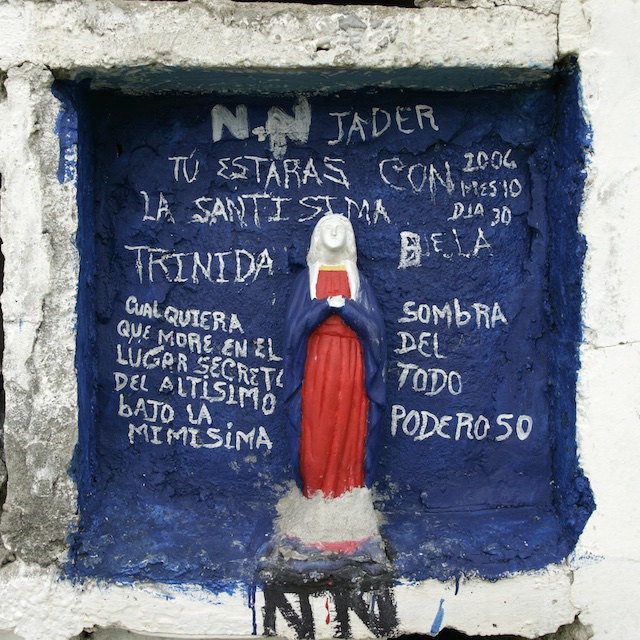 NN JADER
TÚ ESTARAS CON
2006
MES 10
DIA 30
LA SANTISIMA
TRINIDA
BELA
CUALQUIERA
QUE MORE EN EL
LUGAR SECRETO
DEL ALTÍSIMO
BAJO LA
MIMISIMA
SOMBRA
DEL
TODO
PODEROSO
NN